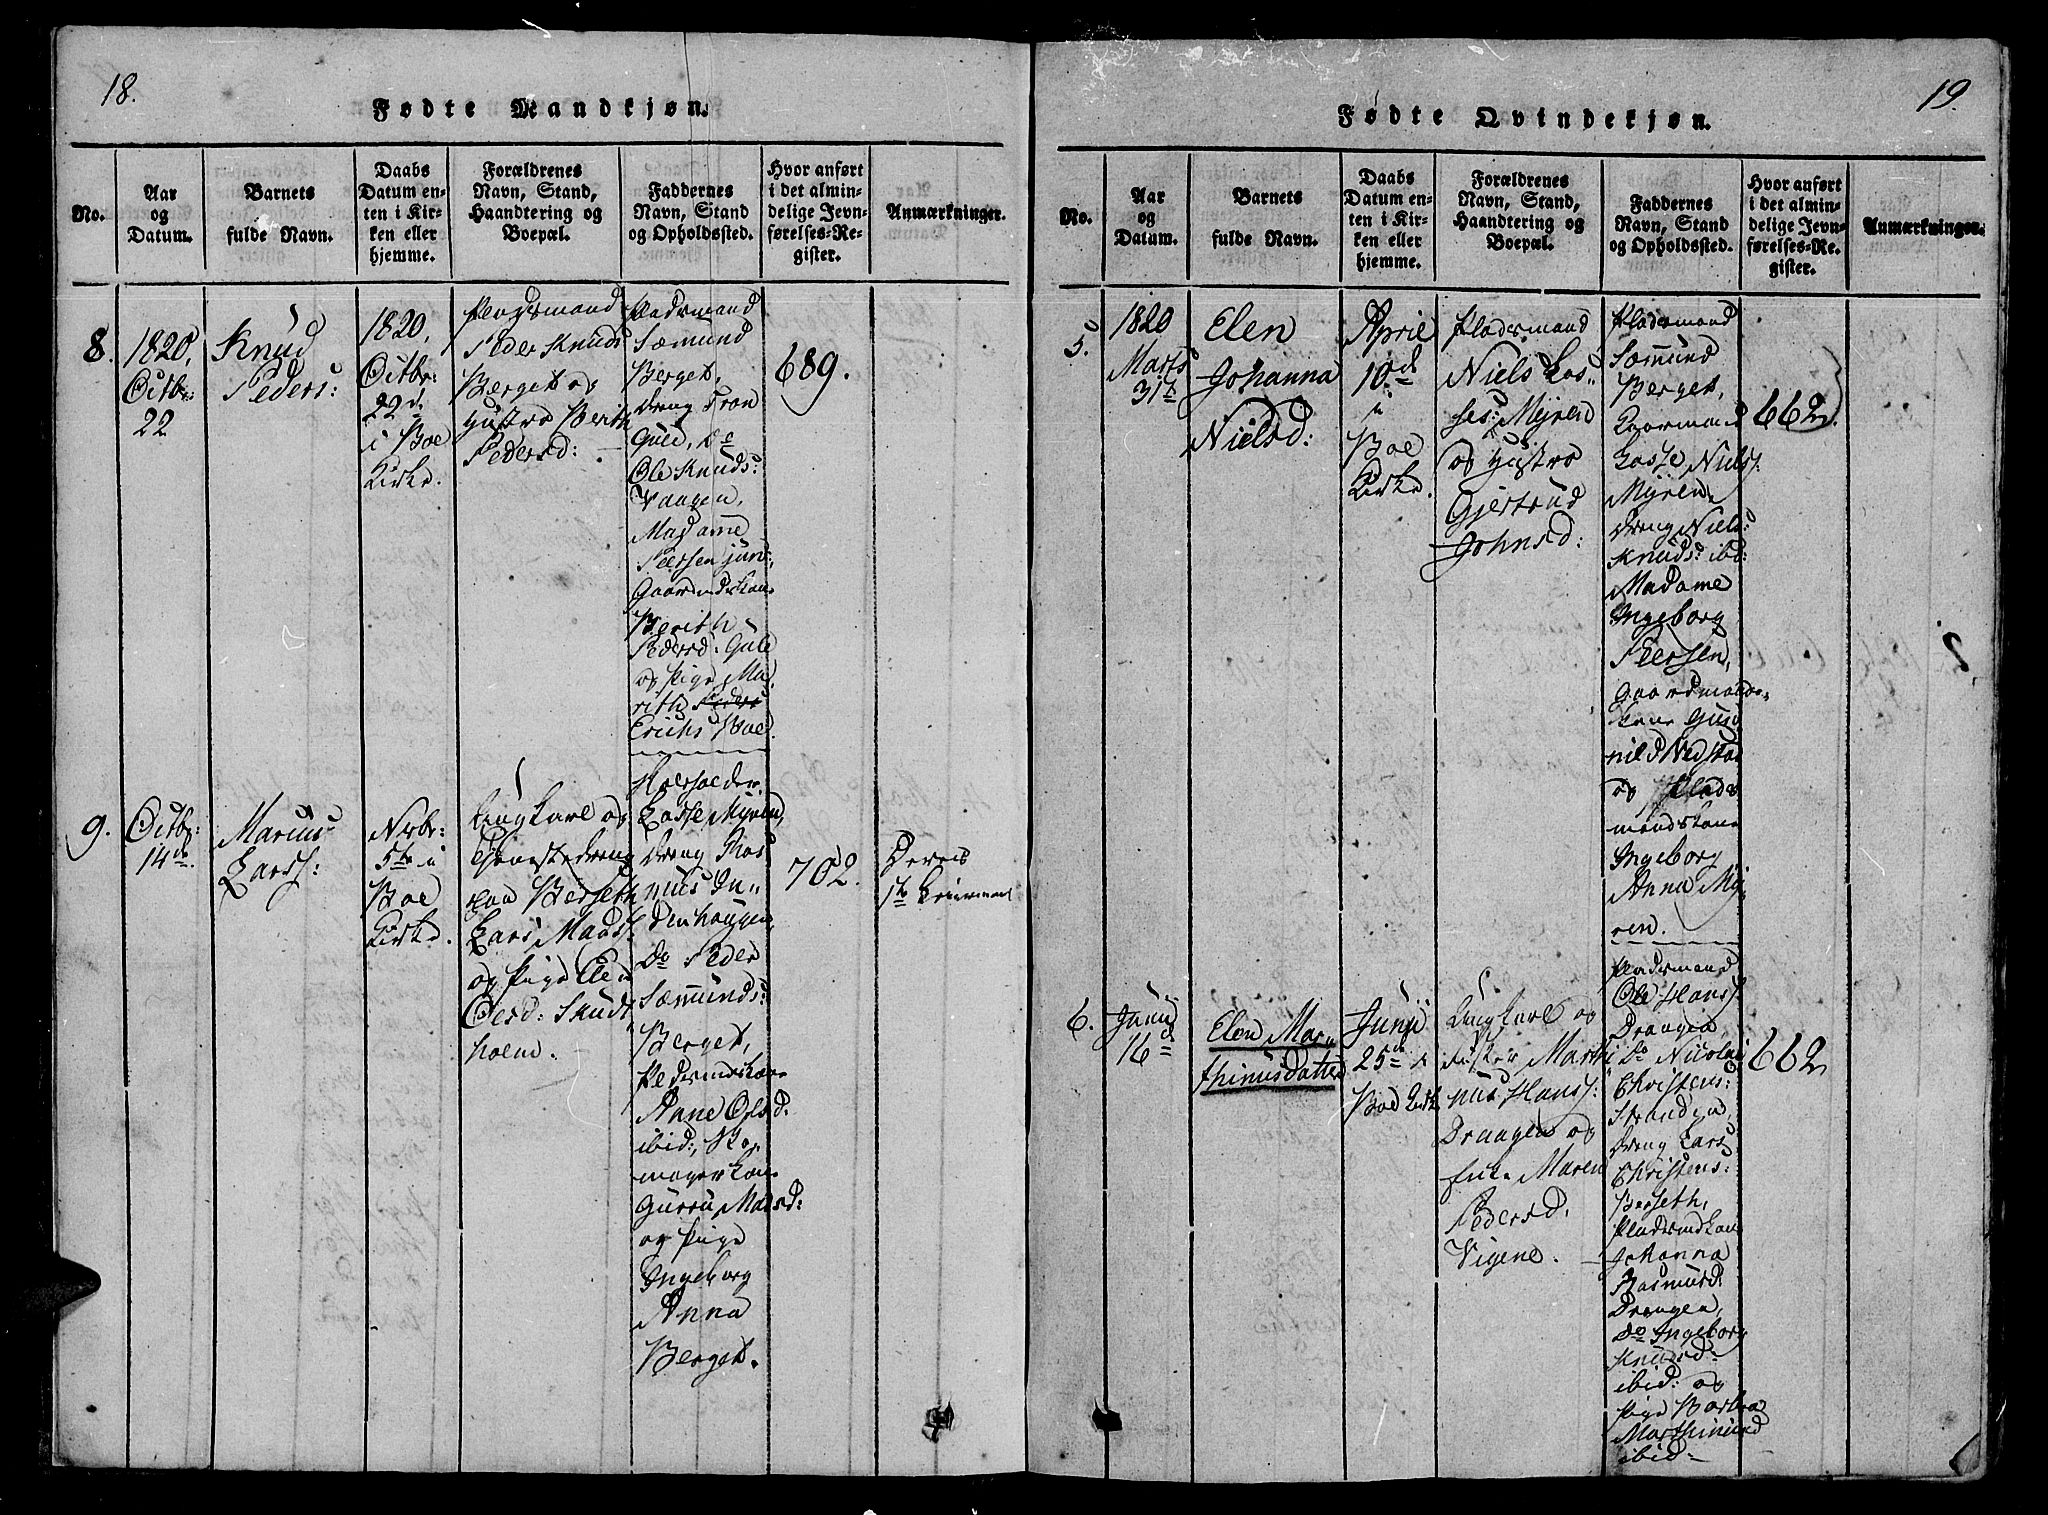 18.
Fødte Mandkjøn.
No.
Aar
og
Datum.
Barnets
fulde Navn.
Daabs
Datum en-
ten i Kir-
ken eller
hjemme.
Forældrenes
Navn, Stand,
Haandtering og
Boepæl.
Faddernes
Navn, Stand
og Opholdssted.
Hvor anført
i det almin-
delige Jevn-
førelses-Re-
gister.
Anmærkninger.
8.
1820,
Octbr:
22
Knud
Peders:
1820,
Octbr:
22d
i Boe
Kirke.
Peder Knuds
Berget og
Hustro Berith
Pedersd:
Pladsmand
Sæmund
Berget,
Dreng Tron
Guld, De
Ole Knuds:
Vaagen,
Madame
Peersen jun:
Gaardmdskone
Berith
Pedersd: Guld
og Pige Ma-
rith Peders
Erichs Boe.
689.
9.
Octbr:
14de
Marius
Larss:
Nvbr:
5te i
Boe
Kirke.
Ungkarl og
Tjenestedreng
paa Berseth
Lars Mads:
og Pige Elen
Olesd: Skudt-
holm.
Lasse Myren,
Dreng Ras-
mus In-
denhougen,
Do Peder
Sæmunds:
Berget,
Pladsmdskone
Anne Olsd.
ibid:
Gurru Madsd:
og Pige
Ingeborg
Anna
Berget.
702.
Deres
1te Leiermaal
19.
Fødte Qvindekjøn.
No.
Aar
og
Datum.
Barnets
fulde Navn.
Daabs
Datum en-
ten i Kir-
ken eller
hjemme.
Forældrenes
Navn, Stand,
Haandtering og
Boepæl.
Faddernes
Navn, Stand
og Opholdssted.
Hvor anført
i det almin-
delige Jevn-
førelses-Re-
gister.
Anmærkninger.
5.
1820
Marts
31te
Elen
Johanna
Nielsd:
April
10d
i
Boe
Kirke.
Pladsmand
Niels Las-
ses: Myren
og Hustro
Gjertrud
Johnsd:
Pladsmand
Sæmund
Berget,
Gaarmand
Lasse Niels:
Myren,
Dreng Niels
Knuds: ibd:
Madame
Ingeborg
Peersen,
Gaardmands-
kone Gu-
nild Nedstad
og Plads-
mandskone
Ingeborg
Anna My-
ren.
662.
6.
Junii
16d
Elen Mar-
thinusdatter
Junii
25de i
Boe Kirke
Ungkarl og
Fisker Marthi-
nus Hans:
Draagen og
Enke Maren
Pedersd.
Vigene.
Pladsmand
Ole Hans:
Draagen
Do Nicolai
Christens:
Stranden
Dreng Lars
Christens:
Berseth,
Pladsmdkone
Johanna
Rasmusd:
Draagen,
Do Ingeborg
Knudsd:
ibid: og
Pige Barbra
Marthinusd
ibid:
662